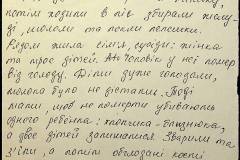 потім ходили в ліс збирали жолу-
ді, мололи та пекли лепешки.
Рядом жила сім'я, сусіди: жінка
та троє дітей. А чоловік у неї помер
від голоду. Діти дуже голодали,
молока було не дістати. Тоді
мати, щоб не померти убиває
одного ребенка: хлопчика-близнюка,
а двоє дітей залишилися. Зварили та
з'їли, а потім обгладані кості